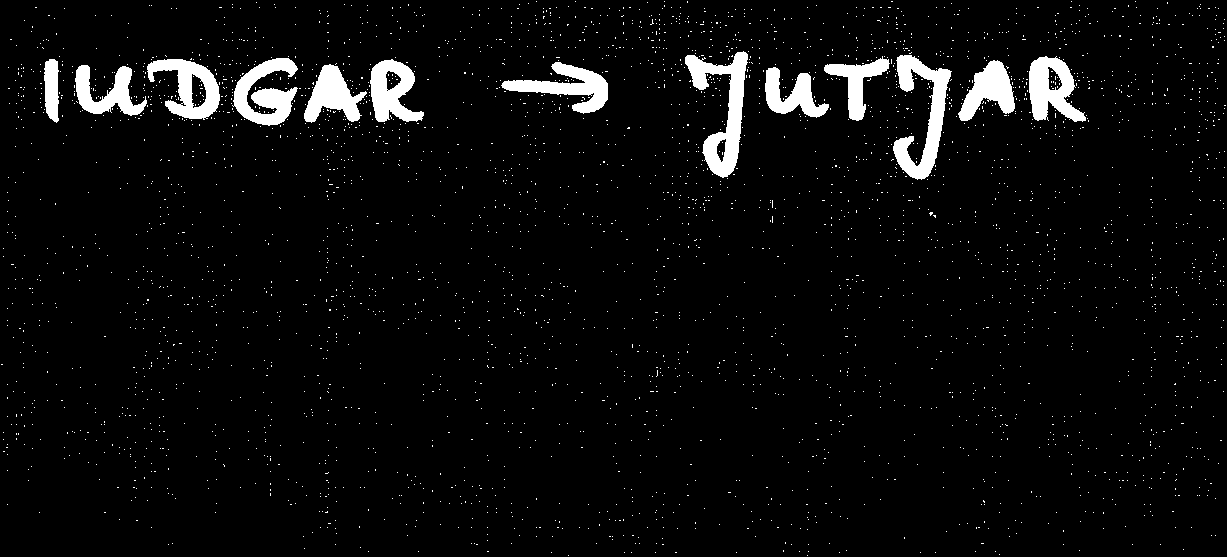 IUDGAR → JUTJAR